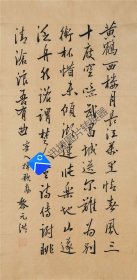 黃鶴西樓月長江萬里情春風三
十度空憶武昌城送爾難為別
銜杯惜未傾湖連張樂地山逐
泛舟行諾謂楚人重詩傳謝朓
清滄浪吾有曲寄入棹歌聲 黎元洪